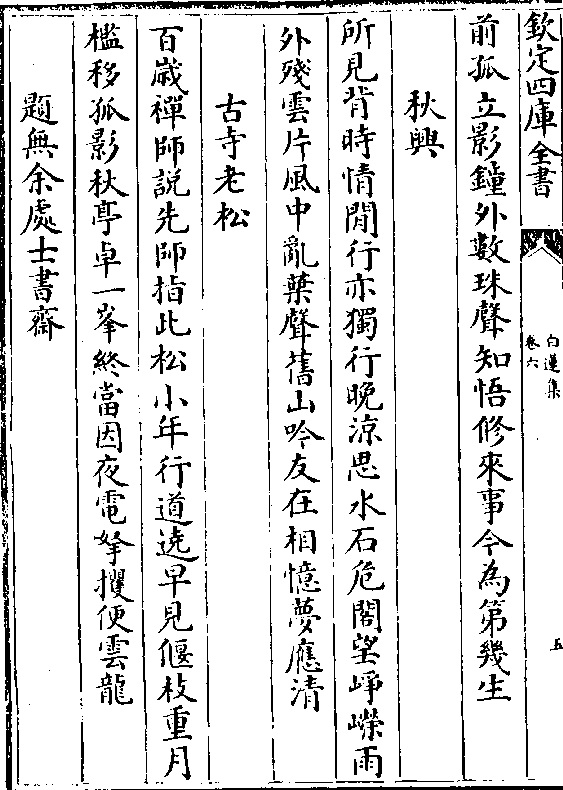 欽定四庫全書
白蓮集
卷六
五
前孤立影鐘外數珠聲知悟修來事今為第幾生
秋興
所見背時情閒行亦獨行晚涼思水石危閣望崢嶸雨
外殘雲片風中亂葉聲舊山吟友在相憶夢應清
古寺老松
百歲禪師說先師指此松小年行道遶早見偃枝重月
檻移孤影秋亭卓一峯終當因夜電拏攫便雲龍
題無余處士書齋